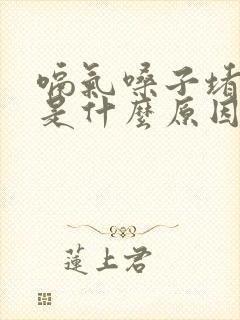 嗝氣嗓子堵
是什麼原因
蓮上君